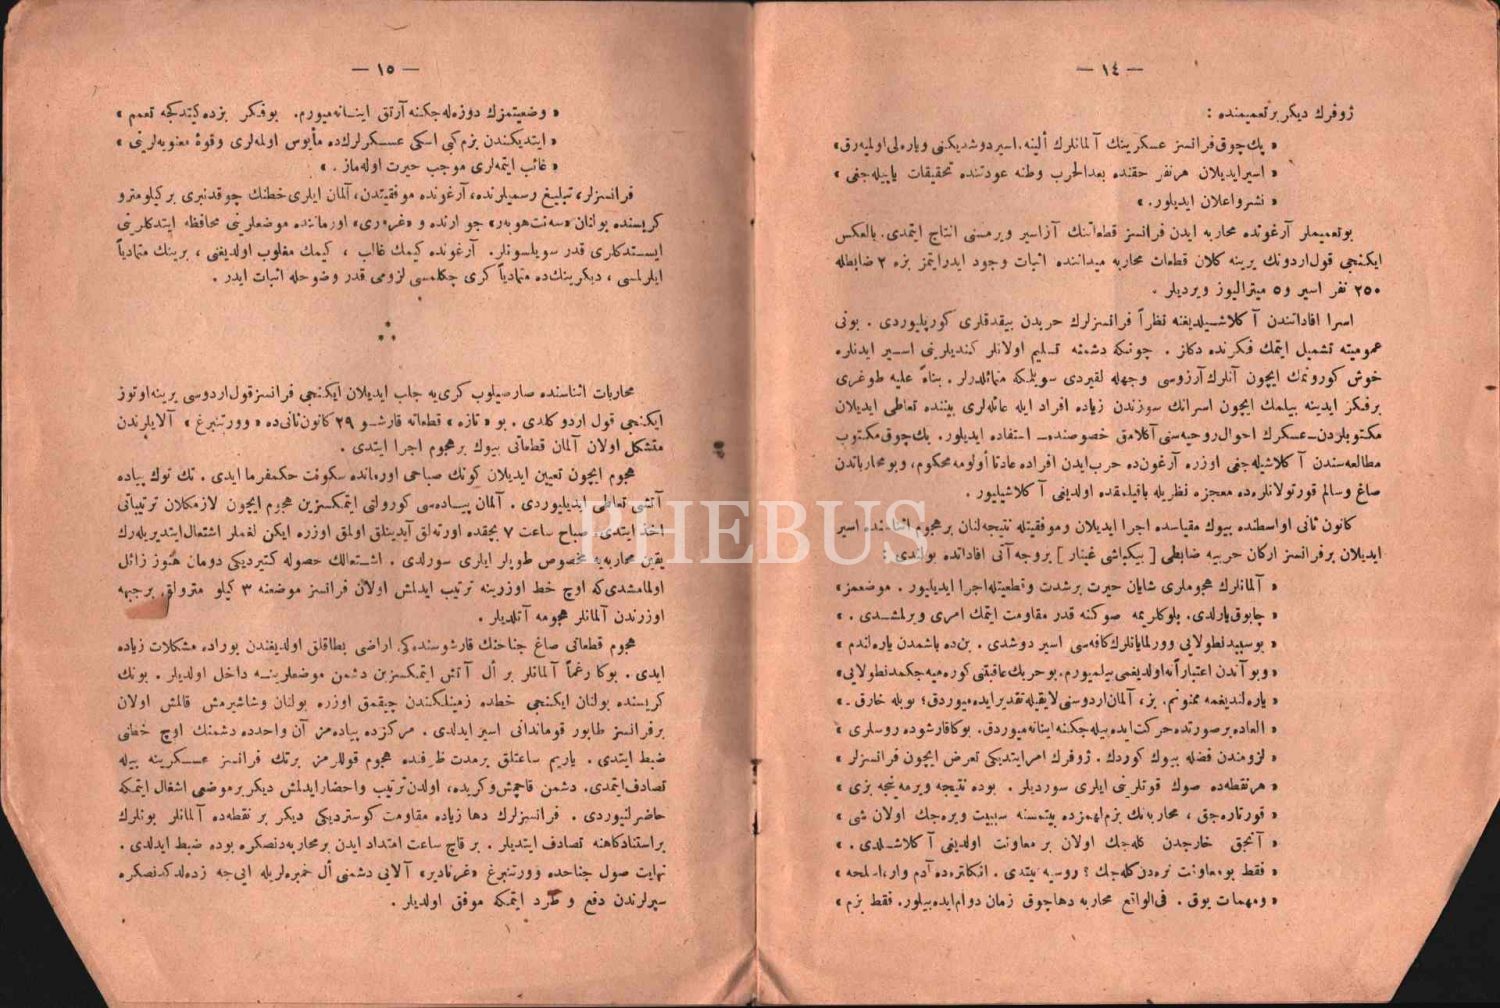 — ١٤ —
ژوفرك ديكر برتعميمنده :
« پك چوق فرانسز عسكرينك آلمانلرك ألينه. اسير دوشديكنى ويارهلى اولميهرق»
« اسير ايديلان هرنفر حقنده بعدالحرب وطنه عودتنده تحقيقات ياپيلهجغى »
« نشر واعلان ايديلور. »
بوتعميملر آرغونده محاربه ايدن فرانسز قطعاتنك آز اسير ويرمسنى انتاج ايتمدى. بالعكس
ايكنجى قول اردونك يرينه كلان قطعات محاربه ميداننده اثبات وجود ايدر ايتمز بزه ٢ ضابطله
٢٥٠ نفر اسير و ٥ ميتراليوز ويرديلر .
اسرا افاداتندن آكلاشيلديغنه نظراً فرانسزلرك حربدن بيقدقلرى كوريليوردى . بونى
عموميته تشميل ايتمك فكرنده دكلز . چونكه دشمنه تسليم اولانلر كنديلرينى اسير ايدنلره
خوش كورونمك ايچون آنلرك آرزوسى وجهله لقيردى سويلمكه متمائلدرلر . بناءً عليه طوغرى
برفكر ايدينه بيلمك ايچون اسرانك سوزندن زياده افراد ايله عائلهلرى بيننده تعاطى ايديلان
مكتوبلردن ـ عسكرك احوال روحيهسنى آكلامق خصوصنده ـ استفاده ايديلور. پك چوق مكتوب
مطالعهسندن آكلاشيلهجغى اوزره آرغونده حرب ايدن افراده عادتا أولومه محكوم، وبو محارباتدن
صاغ وسالم قورتولانلرهده معجزه نظريله باقيلمقده اولديغى آكلاشيليور .
كانون ثانى اواسطنده بيوك مقياسده اجرا ايديلان وموفقيتله نتيجهلنان برهجوم اثناسنده اسير
ايديلان برفرانسز اركان حربيه ضابطى [ بيكباشى غينار ] بروجه آتى افاداتده بولندى :
« آلمانلرك هجوملرى شايان حيرت برشدت وقطعيتله اجرا ايديليور . موضعمز»
« چابوق يارلدى. بلوكلريمه صوكنه قدر مقاومت ايتمك امرى ويرلمشدى . »
« بوسببدنطولايى وورلمايانلرك كافهسى اسير دوشدى . بنده باشمدن يارهلندم »
« وبوآندن اعتباراً نه اولديغمى بيلميورم. بوحربك عاقبتنى كورهميهجكمدنطولايى»
« يارهلنديغمه ممنونم. بز، آلمان اردوسنى لايقيله تقدير ايدهميوردق؛ بويله خارق ـ »
« العاده برصورتده حركت ايده بيلهجكنه اينانهميوردق. بوكا قارشوده روسلرى »
« لزومندن فضله بيوك كوردك . ژوفرك امر ايتديكى تعرض ايچون فرانسزلر »
« هرنقطهده صوك قوتلرينى ايلرى سورديلر . بوده نتيجه ويرمهينجه بزى »
« قورتارهجق ، محاربهنك بزم لهمزده بيتمسنه سببيت ويرهجك اولان شى »
« آنجق خارجدن كلهجك اولان بر معاونت اولديغى آكلاشلدى . »
« فقط بومعاونت نرهدن كلهجك ؟ روسيه بيتدى . انكلترهده آدم وار، اسلحه »
« ومهمات يوق . فىالواقع محاربه دها چوق زمان دوام ايدهبيلور. فقط بزم »
— ١٥ —
« وضعيتمزك دوزهلهجكنه آرتق اينانهميورم. بوفكر بزده كيتدكجه تعمم »
« ايتديكندن بزم كبى اسكى عسكرلركده مأيوس اولمهلرى وقوۀ معنويهلرينى »
« غائب ايتمهلرى موجب حيرت اولهماز . »
فرانسزلر، تبليغ رسميلرنده، آرغونده موفقيتدن، آلمان ايلرى خطنك چوقدنبرى بركيلومترو
كريسنده بولنان «سهنت هوبهر» جوارنده و «غرورى» اورماننده موضعلرينى محافظه ايتدكلرينى
ايستدكلرى قدر سويلسونلر. آرغونده كيمك غالب ، كيمك مغلوب اولديغى ، برينك متمادياً
ايلرلمسى ، ديكرينكده متمادياً كرى چكلمسى لزومى قدر وضوحله اثبات ايدر .
محاربات اثناسنده صارصيلوب كرىيه جلب ايديلان ايكنجى فرانسز قول اردوسى يرينه اوتوز
ايكنجى قول اردو كلدى . بو « تازه » قطعاته قارشو ٢٩ كانون ثانىده « وورتنبرغ » آلايلرندن
متشكل اولان آلمان قطعاتى بيوك برهجوم اجرا ايتدى .
هجوم ايچون تعيين ايديلان كونك صباحى اورمانده سكونت حكمفرما ايدى . تك توك پياده
آتشى تعاطى ايديليوردى . آلمان پيادهسى كورولتى ايتمكسزين هجوم ايچون لازمكلان ترتيباتى
اخذ ايتدى. صباح ساعت ٧ بچقده اورتهلق آيدينلق اولمق اوزره ايكن لغملر اشتعال ايتديريلهرك
يقين محاربهيه مخصوص طوپلر ايلرى سورلدى . اشتعالك حصوله كتيرديكى دومان هنوز زائل
اولمامشدى كه اوچ خط اوزرينه ترتيب ايدلمش اولان فرانسز موضعنه ٣ كيلو مترولق برجبهه
اوزرندن آلمانلر هجومه آتلديلر .
هجوم قطعاتى صاغ جناحنك قارشوسندهكى اراضى بطاقلق اولديغندن بوراده مشكلات زياده
ايدى . بوكا رغماً آلمانلر بر أل آتش ايتمكسزين دشمن موضعلرينه داخل اولديلر . بونك
كريسنده بولنان ايكنجى خطده زمينلكندن چيقمق اوزره بولنان وشاشيرمش قالمش اولان
برفرانسز طابور قوماندانى اسير ايدلدى . مركزده پيادهمز آن واحدده دشمنك اوچ خطنى
ضبط ايتدى . ياريم ساعتلق برمدت ظرفنده هجوم قوللرمز برتك فرانسز عسكرينه بيله
تصادف ايتمدى. دشمن قاچمش وكريده، اولدن ترتيب واحضار ايدلمش ديكر برموضعى اشغال ايتمكه
حاضرلنيوردى . فرانسزلرك دها زياده مقاومت كوسترديكى ديكر بر نقطهده آلمانلر بونلرك
براستنادكاهنه تصادف ايتديلر . بر قاچ ساعت امتداد ايدن برمحاربهدنصكره بوده ضبط ايدلدى .
نهايت صول جناحده وورتنبرغ «غرنادير» آلايى دشمنى أل خمبرهلريله ايىجه زدهلدكدنصكره
سپرلرندن دفع و طرد ايتمكه موفق اولديلر .
PHEBUS